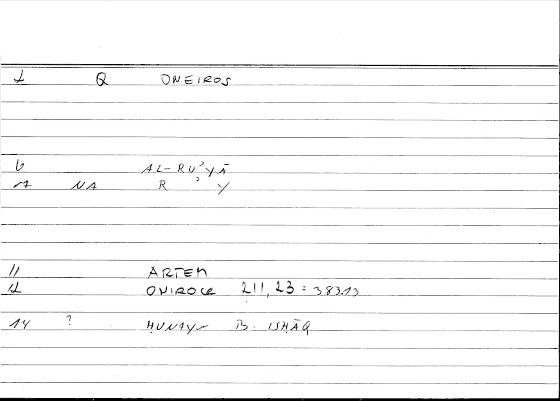 1 Q ONEIROS
6 AL-RU'YĀ
A NA R ' Y
11 ARTEM
12 ONIROCR 211,23 = 383,13
14 ? HUNAYN B. ISHĀQ